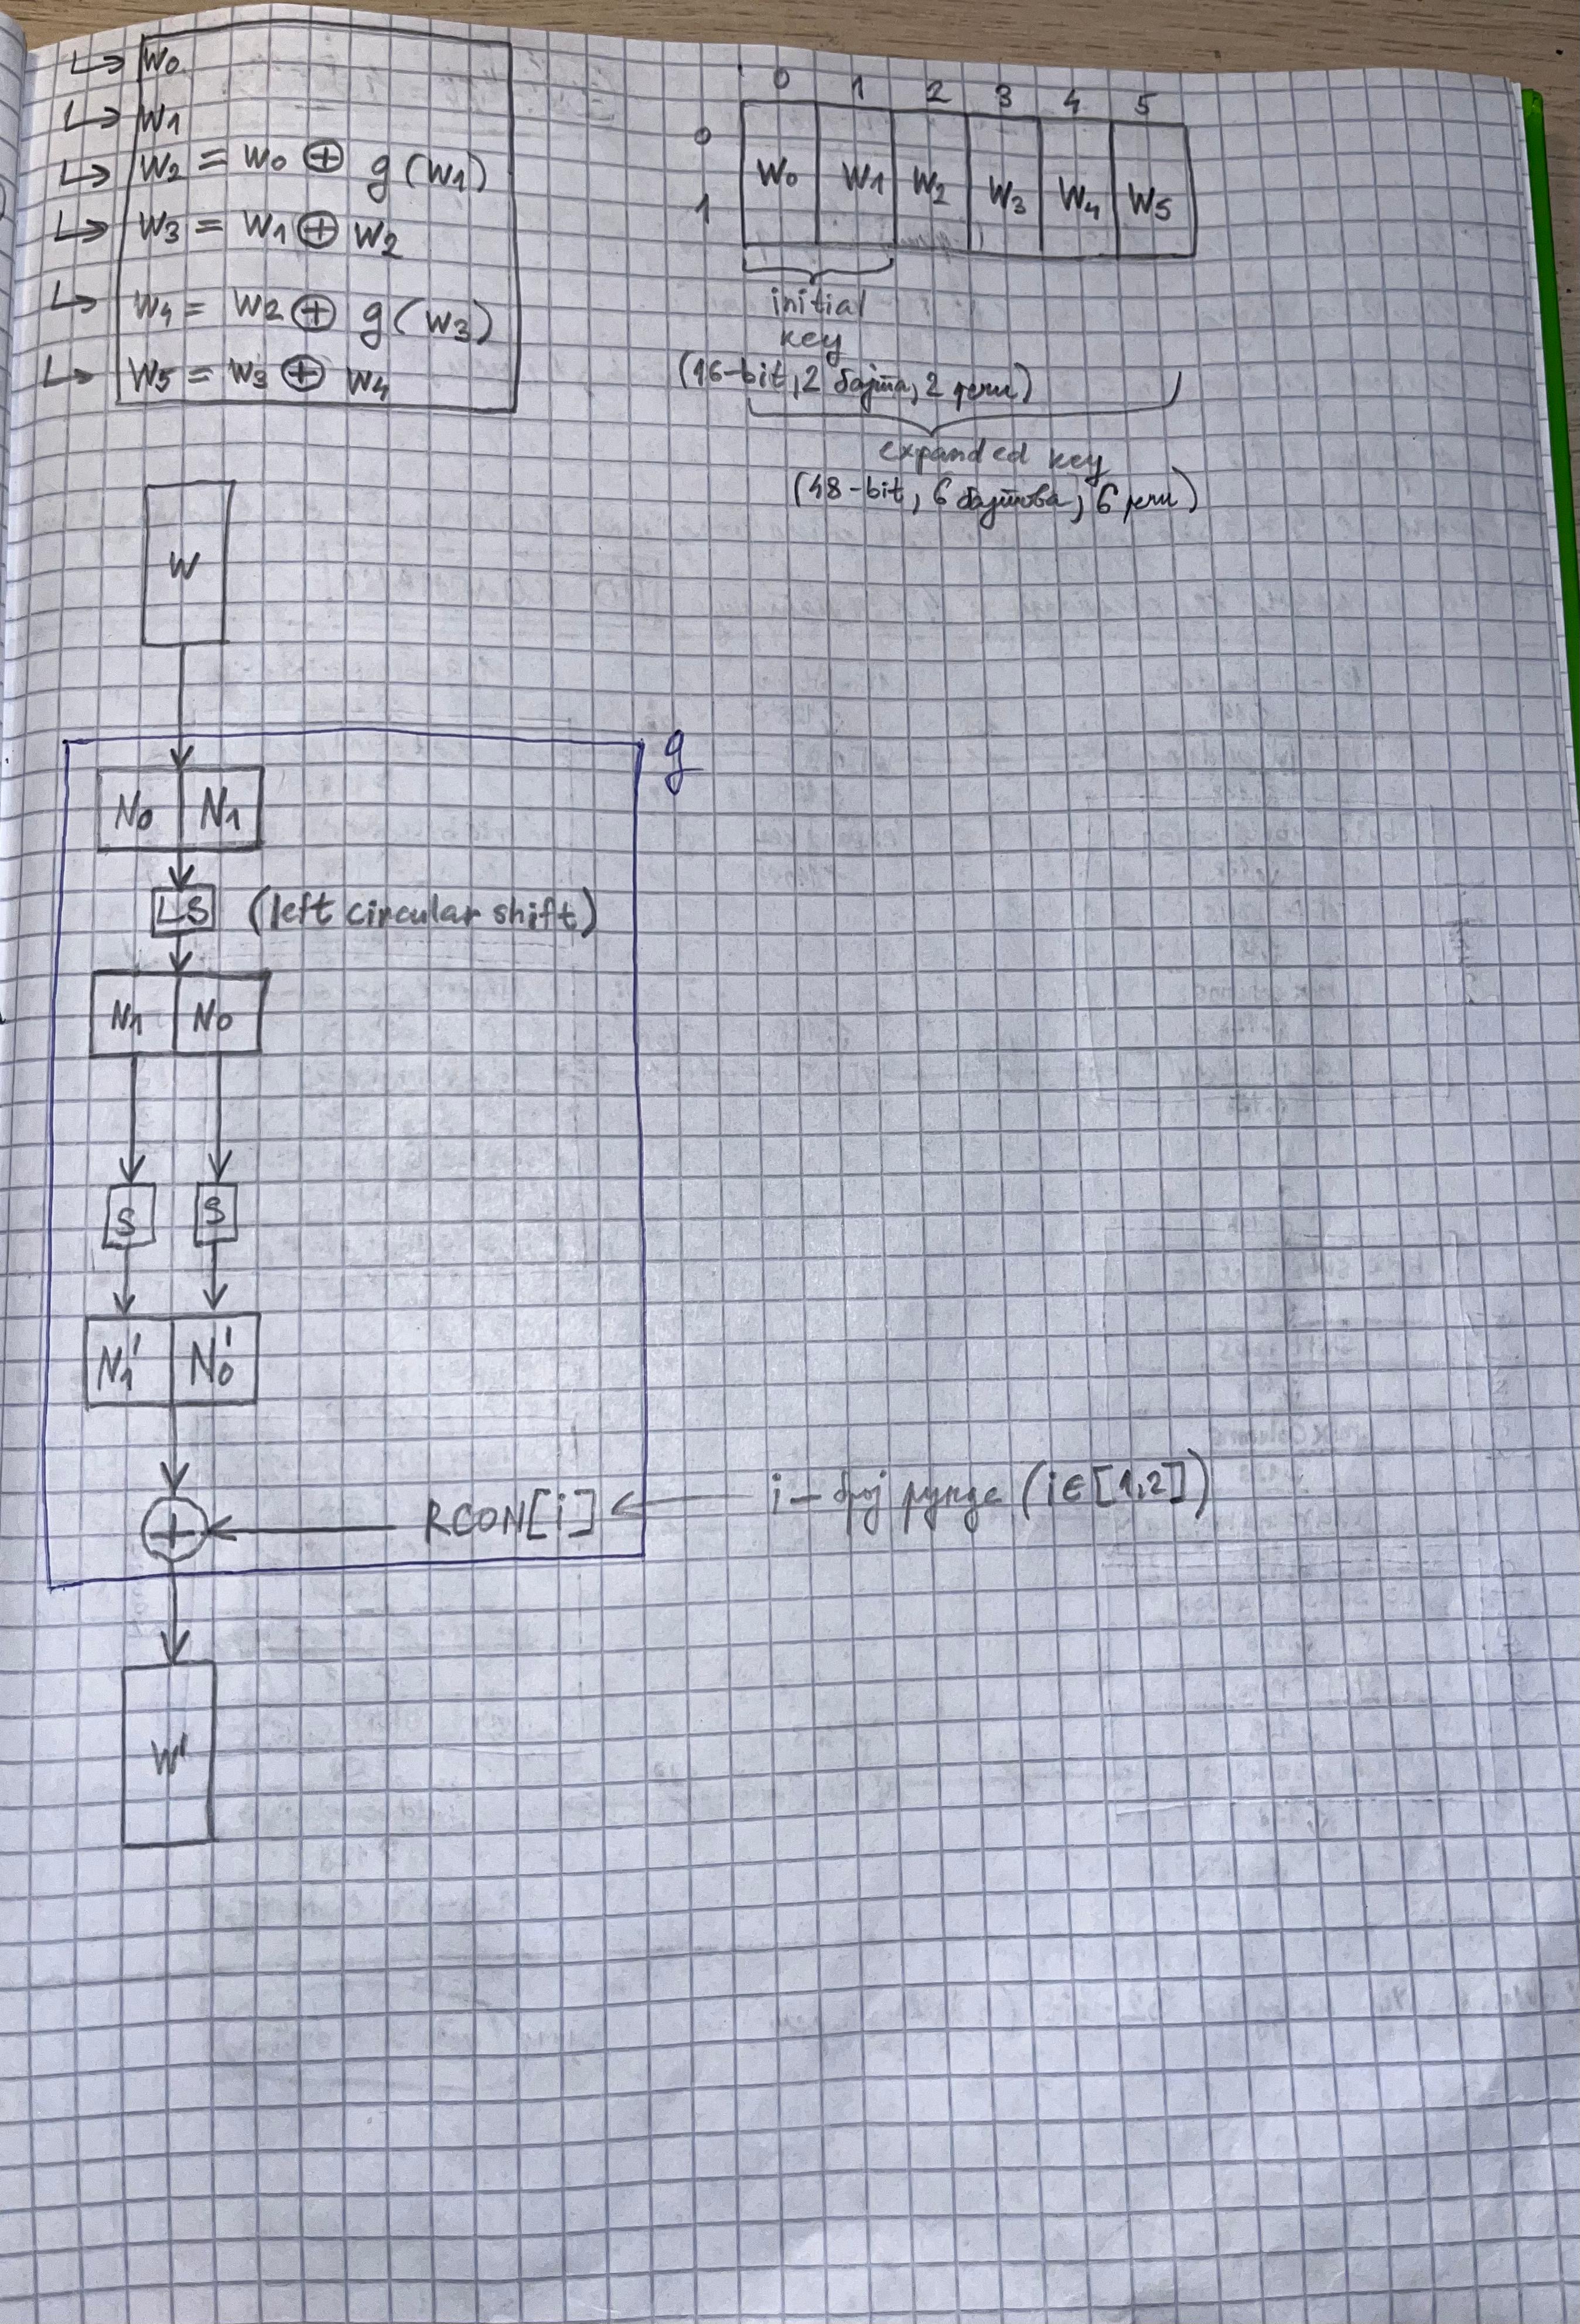 ↳ W0
↳ W1
↳ W2 = W0 ⊕ g(W1)
↳ W3 = W1 ⊕ W2
↳ W4 = W2 ⊕ g(W3)
↳ W5 = W3 ⊕ W4
0 1 2 3 4 5
0
1
W0 W1 W2 W3 W4 W5
initial
key
(16-bit, 2 бајта, 2 речи)
expanded key
(48-bit, 6 бајтова, 6 речи)
W
g
N0 N1
LS (left circular shift)
N1 N0
S S
N1' N0'
⊕ RCON[i] i - број рунде (i∈[1,2])
W'